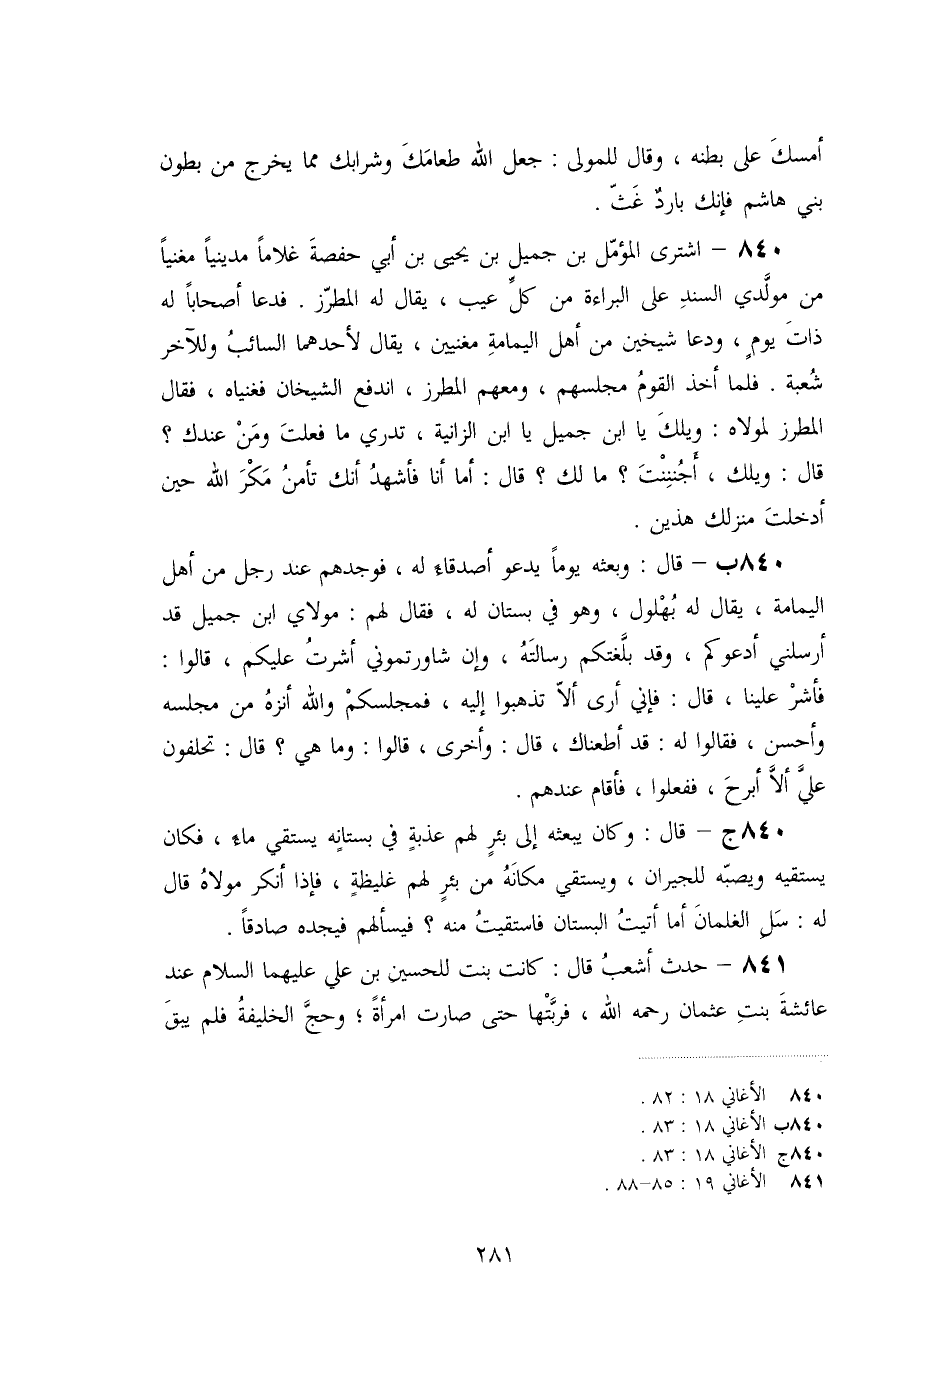 أمسكَ على بطنه ، وقال للمولى : جعل الله طعامَكَ وشرابك مما يخرج من بطون
بني هاشم فإنك باردٌ غَثّ .
٨٤٠ – اشترى المؤمّل بن جميل بن يحيى بن أبي حفصةَ غلاماً مدينياً مغنياً
من مولَّدي السندِ على البراءة من كلِّ عيب ، يقال له المطرّز . فدعا أصحاباً له
ذاتَ يومٍ ، ودعا شيخين من أهل اليمامةِ مغنيين ، يقال لأحدهما السائبُ وللآخر
شُعبة . فلما أخذ القومُ مجلسهم ، ومعهم المطرز ، اندفع الشيخان فغنياه ، فقال
المطرز لمولاه : ويلكَ يا ابن جميل يا ابن الزانية ، تدري ما فعلتَ ومَنْ عندك ؟
قال : ويلك ، أَجُنِنْتَ ؟ ما لك ؟ قال : أما أنا فأشهدُ أنك تأمنُ مَكْرَ الله حين
أدخلتَ منزلك هذين .
٨٤٠ب – قال : وبعثه يوماً يدعو أصدقاءَ له ، فوجدهم عند رجل من أهل
اليمامة ، يقال له بُهْلول ، وهو في بستان له ، فقال لهم : مولاي ابن جميل قد
أرسلني أدعوكم ، وقد بلَّغتكم رسالتَهُ ، وإن شاورتموني أشرتُ عليكم ، قالوا :
فأشرْ علينا ، قال : فإني أرى ألاّ تذهبوا إليه ، فمجلسكمْ والله أنزهُ من مجلسه
وأحسن ، فقالوا له : قد أطعناك ، قال : وأخرى ، قالوا : وما هي ؟ قال : تحلفون
عليَّ ألاَّ أبرحَ ، ففعلوا ، فأقام عندهم .
٨٤٠ج – قال : وكان يبعثه إلى بئرٍ لهم عذبةٍ في بستانِه يستقي ماءً ، فكان
يستقيه ويصبّه للجيران ، ويستقي مكانَهُ من بئرٍ لهم غليظةٍ ، فإذا أنكر مولاهُ قال
له : سَلِ الغلمانَ أما أتيتُ البستان فاستقيتُ منه ؟ فيسألهم فيجده صادقاً .
٨٤١ – حدث أشعبُ قال : كانت بنت للحسين بن علي عليهما السلام عند
عائشةَ بنتِ عثمان رحمه الله ، فربَّتْها حتى صارت امرأةً ؛ وحجَّ الخليفةُ فلم يبقَ
٨٤٠ الأغاني ١٨ : ٨٢ .
٨٤٠ب الأغاني ١٨ : ٨٣ .
٨٤٠ج الأغاني ١٨ : ٨٣ .
٨٤١ الأغاني ١٩ : ٨٥–٨٨ .
٢٨١